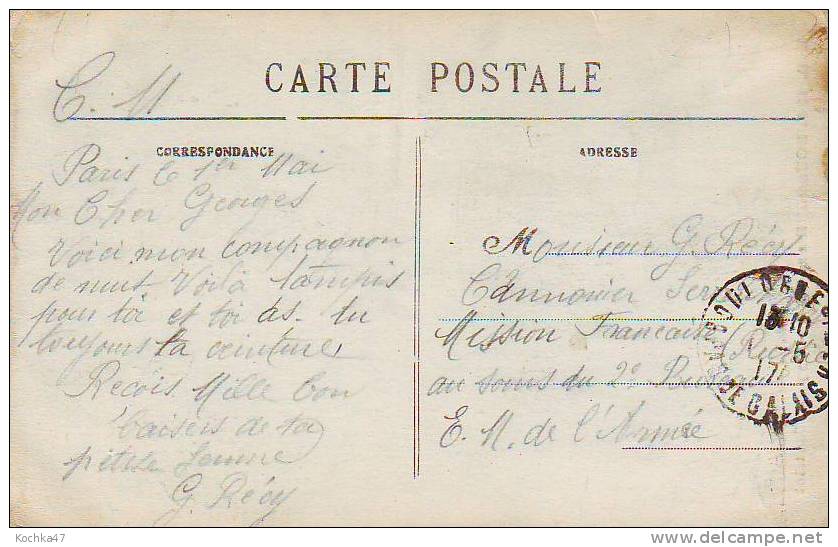 C. M
CARTE POSTALE
CORRESPONDANCE
ADRESSE
Paris le 1er Mai
Mon Cher Georges
Voici mon compagnon
de nuit Voilà tampis
pour toi et toi as-tu
toujours ta ceinture
Recois Mille bon
baisers de ta
petite femme
G. Récy
Monsieur G. Récy
Cannonier
Mission Francaise
au soins du 2e
E. M. de l'Armée
BOULOGNE-S-MER
13 10
-5
17
PAS DE CALAIS
Kochka47